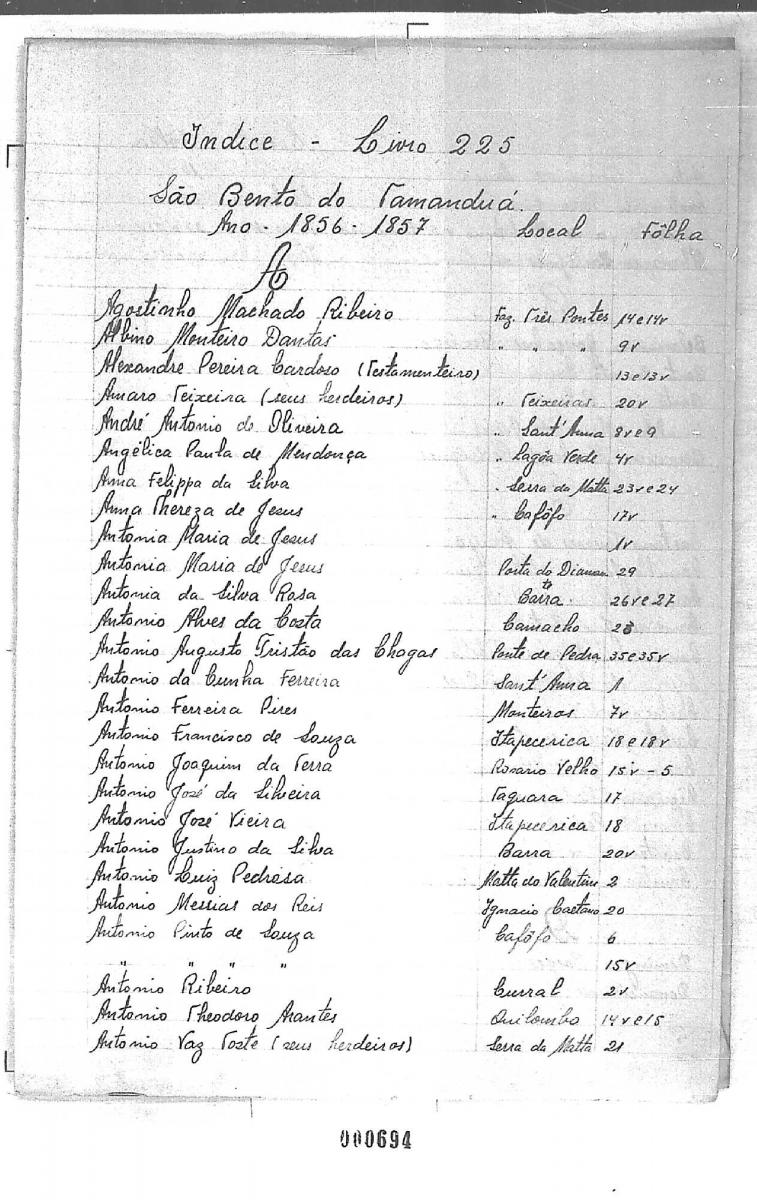 Indice - Livro 225
São Bento do Tamanduá.
Ano - 1856 - 1857 Local Fôlha
A
Agostinho Machado Ribeiro Faz. Três Pontes 14 e 14v
Albino Monteiro Dantas " " " 9v
Alexandre Pereira Cardoso (Testamenteiro) 13 e 13v
Amaro Teixeira (seus herdeiros) " Teixeiras 20v
André Antonio de Oliveira " Sant'Anna 8v e 9
Angélica Paula de Mendonça " Lagôa Verde 4v
Anna Felippa da Silva " Serra da Matta 23v e 24
Anna Thereza de Jesus " Cafôfo 17v
Antonia Maria de Jesus 1v
Antonia Maria de Jesus Porta do Diaman te 29
Antonia da Silva Rosa Barra 26v e 27
Antonio Alves da Costa Camacho 23
Antonio Augusto Tristão das Chagas Ponte de Pedra 35 e 35v
Antonio da Cunha Ferreira Sant'Anna 1
Antonio Ferreira Pires Monteiros 7v
Antonio Francisco de Souza Itapecerica 18 e 18v
Antonio Joaquim da Terra Rosario Velho 15v - 5
Antonio José da Silveira Taquara 17
Antonio José Vieira Itapecerica 18
Antonio Justino da Silva Barra 20v
Antonio Luiz Pedrosa Matta do Valentim 2
Antonio Messias dos Reis Ignacio Caetano 20
Antonio Pinto de Souza Cafôfo 6
" " " " 15v
Antonio Ribeiro Curral 2v
Antonio Theodoro Arantes Quilombo 14v e 15
Antonio Vaz Toste (seus herdeiros) Serra da Matta 21
000694